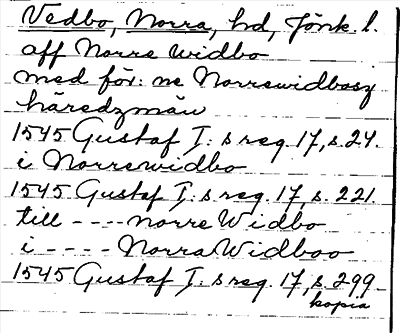 Vedbo, Norra, hd, Jönk. l.
aff Norre widbo
med för: ne Norrewidbosz
häredzmän
1545 Gustaf I: s reg. 17, s. 24.
i Norrewidbo
1545 Gustaf I: s reg. 17, s. 221.
till ---- norre Widbo
i ---- Norra Widboo
1545 Gustaf I: s reg. 17, s. 299
kopia